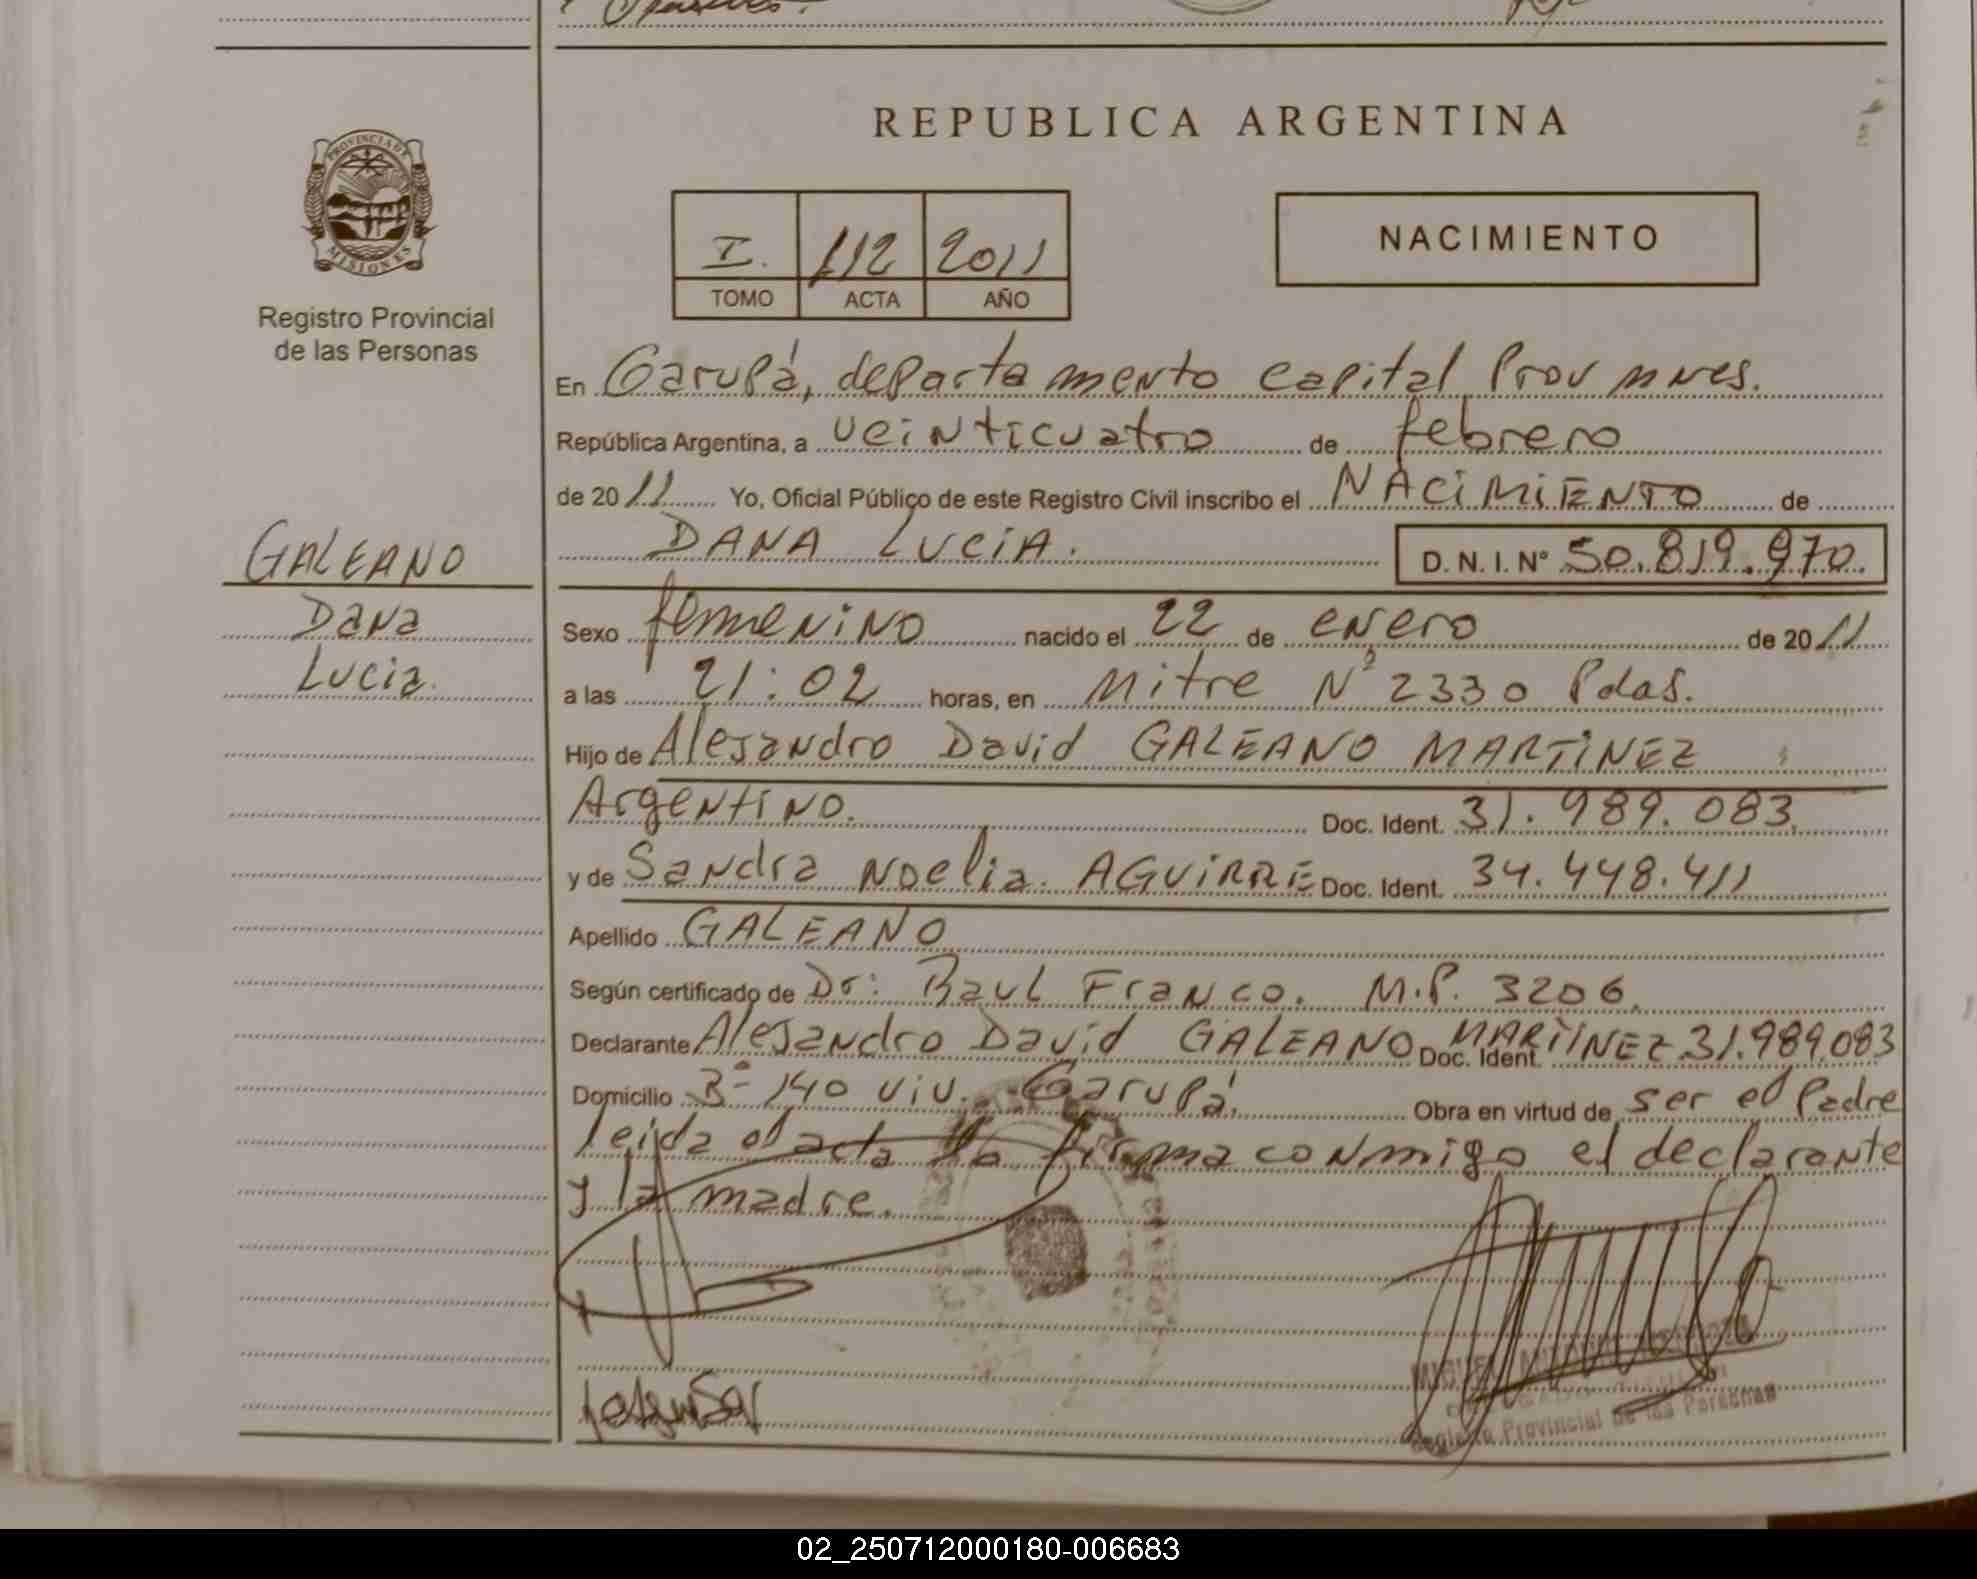 REPUBLICA ARGENTINA
PROVINCIA DE
MISIONES
Registro Provincial
de las Personas
I. 112 2011
TOMO ACTA AÑO
NACIMIENTO
En Garupá, departamento capital Prov mnes.
República Argentina, a veinticuatro de febrero
de 2011 Yo, Oficial Público de este Registro Civil inscribo el NACIMIENTO de
DANA LUCIA. D. N. I. Nº 50.819.970.
GALEANO
Dana
Lucia.
Sexo femenino nacido el 22 de enero de 2011
a las 21:02 horas, en Mitre Nº 2330 Pdas.
Hijo de Alejandro David GALEANO MARTINEZ
Argentino. Doc. Ident. 31.989.083.
y de Sandra Noelia AGUIRRE Doc. Ident. 34.448.411
Apellido GALEANO
Según certificado de Dr: Raul Franco. M.P. 3206.
Declarante Alejandro David GALEANO MARTINEZ Doc. Ident. 31.989.083
Domicilio 3ª 140 viv. Garupá. Obra en virtud de ser el Padre
leida el acta la firma conmigo el declarante
y la madre.
MIGUEL
Registro Provincial de las Personas
02_250712000180-006683